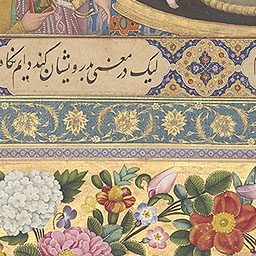 لیک در معنی بدرویشان کند دایم نگاه